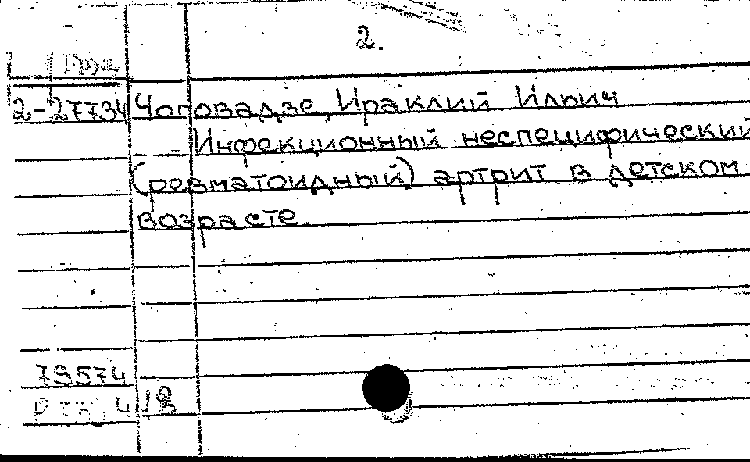 2.
2-27734 Чоговадзе, Ираклий Ильич
Инфекционный неспецифический
(ревматоидный) артрит в детском
возрасте.
79574